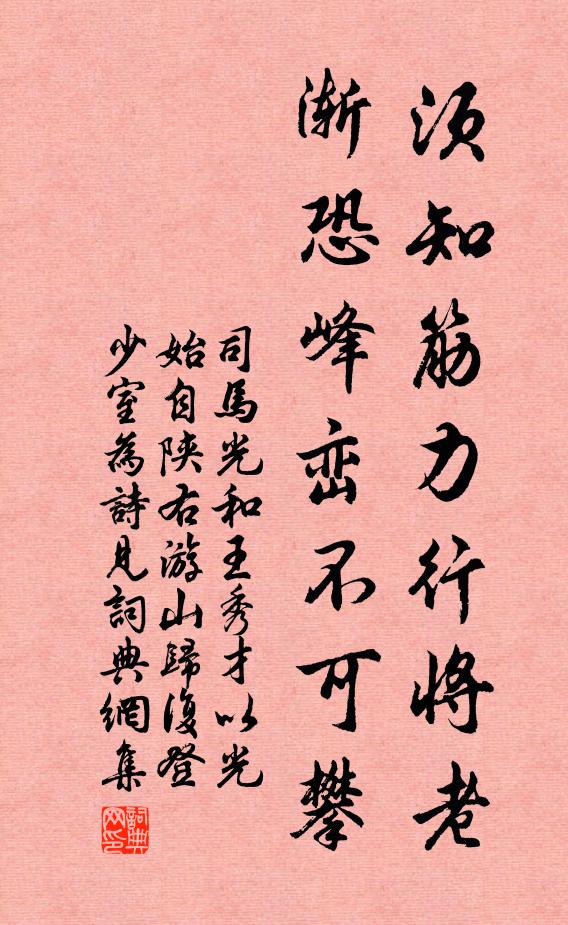 須知筋力行將老
漸恐峰巒不可攀
司馬光和王秀才以光
始自陝右游山歸復登
少室為詩見詞典網集
詞典
网印